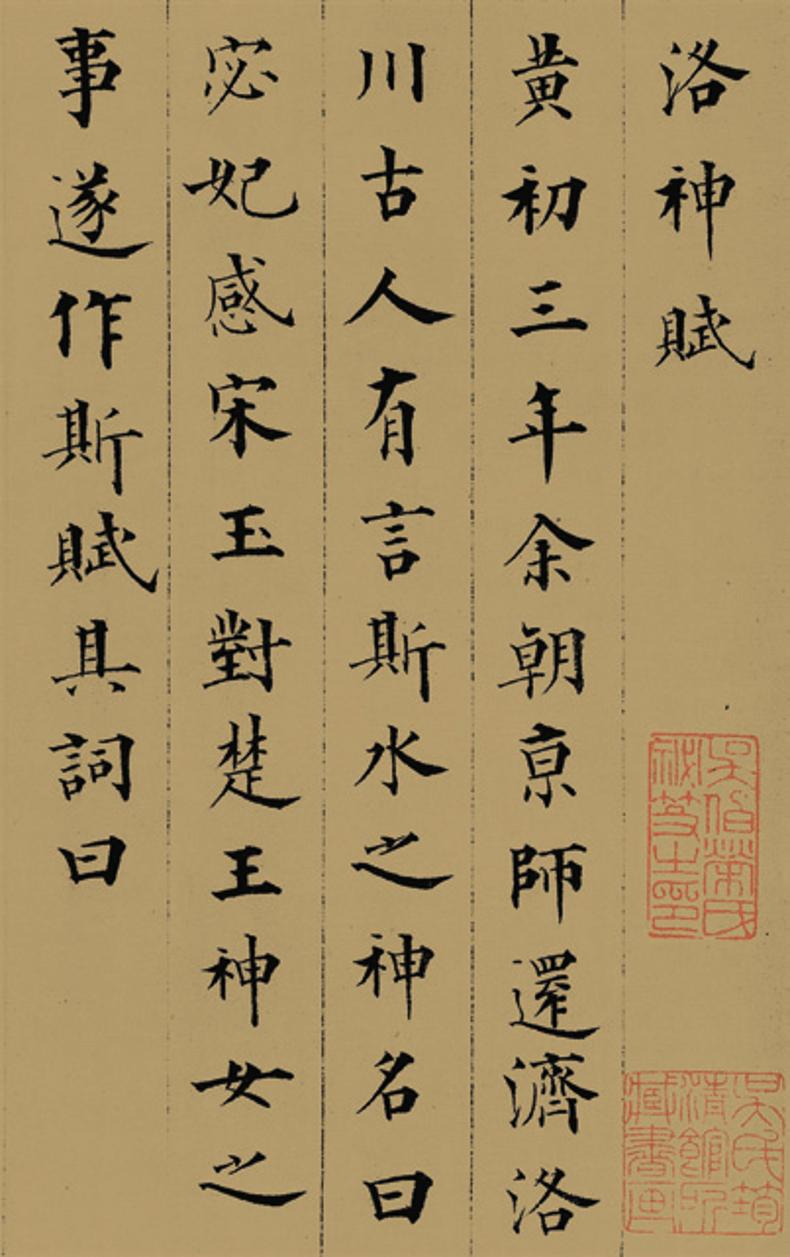 洛神賦
黃初三年余朝京師還濟洛
川古人有言斯水之神名曰
宓妃感宋玉對楚王神女之
事遂作斯賦其詞曰
吳氏筠
清館所
藏書画